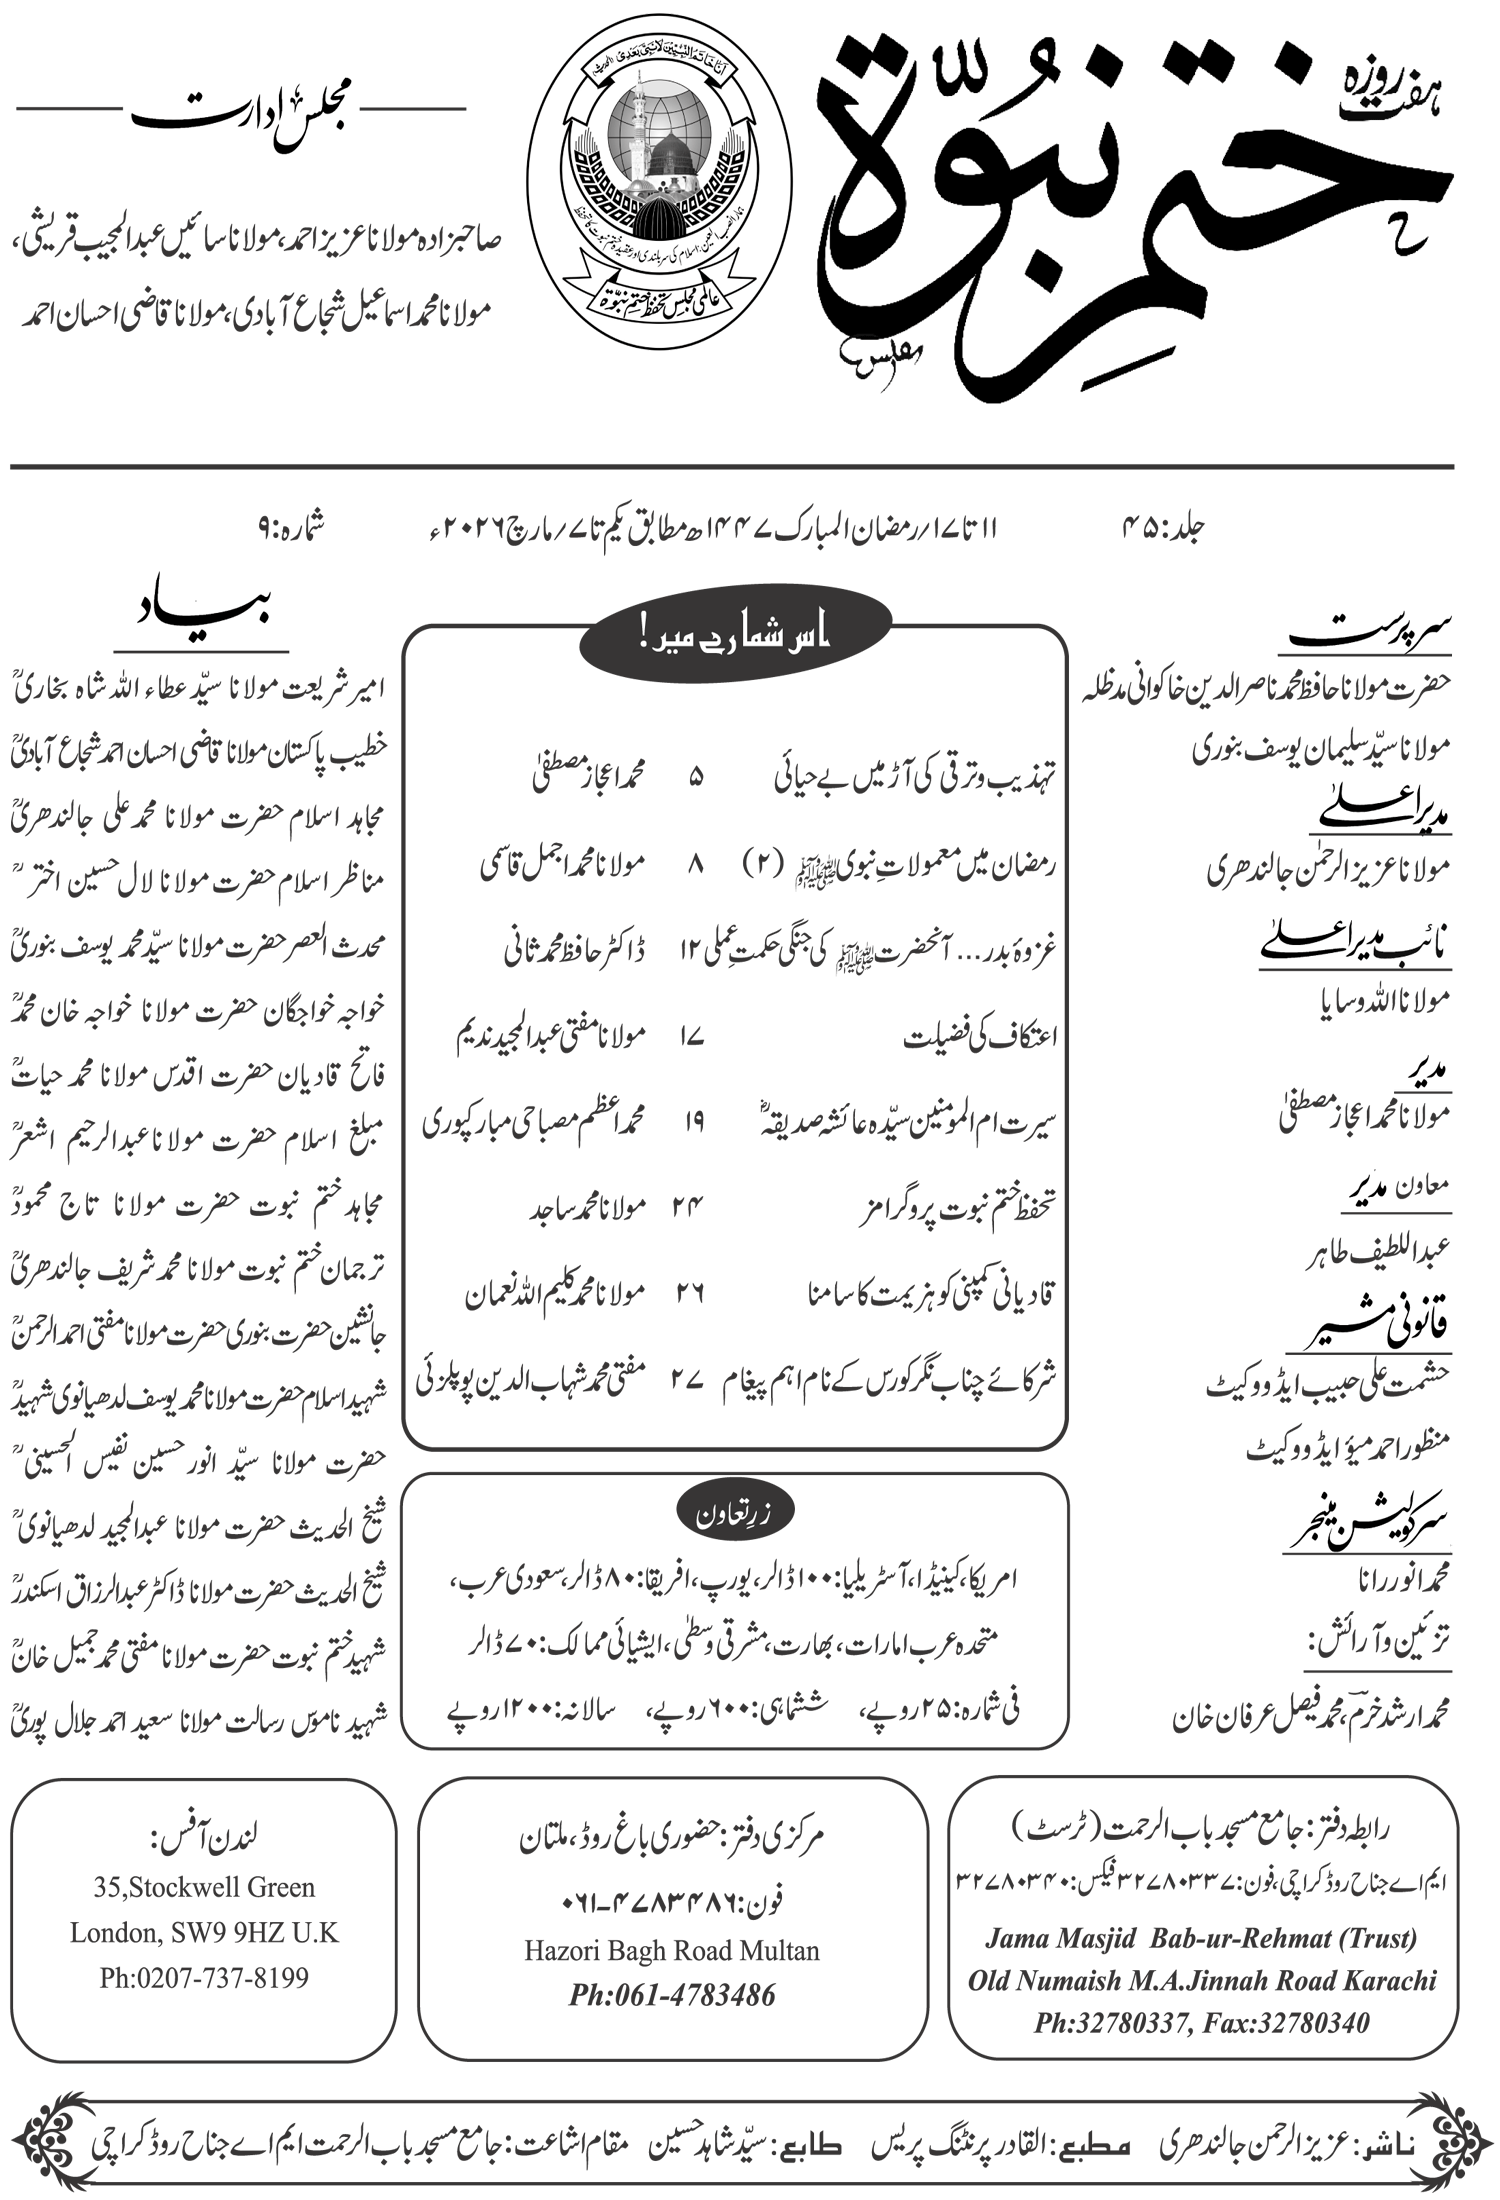 ہفت روزہ
ختم نبوۃ
مجلس ادارت
صاحبزادہ مولانا عزیز احمد، مولانا سائیں عبدالمجیب قریشی،
مولانا محمد اسماعیل شجاع آبادی، مولانا قاضی احسان احمد
عالمی مجلس تحفظ ختم نبوۃ
جلد: ۴۵
۱۱ تا ۱۷؍ رمضان المبارک ۱۴۴۷ھ مطابق یکم تا ۷؍ مارچ ۲۰۲۶ء
شمارہ: ۹
سرپرست
حضرت مولانا حافظ محمد ناصر الدین خاکوانی مدظلہ
مولانا سیّد سلیمان یوسف بنوری
مدیر اعلیٰ
مولانا عزیز الرحمٰن جالندھری
نائب مدیر اعلیٰ
مولانا اللہ وسایا
مدیر
مولانا محمد اعجاز مصطفیٰ
معاون مدیر
عبداللطیف طاہر
قانونی مشیر
حشمت علی حبیب ایڈووکیٹ
منظور احمد میؤ ایڈووکیٹ
سرکولیشن مینجر
محمد انور رانا
تزئین و آرائش:
محمد ارشد خرم، محمد فیصل عرفان خان
اس شمارے میں!
تہذیب و ترقی کی آڑ میں بے حیائی ۵ محمد اعجاز مصطفیٰ
رمضان میں معمولاتِ نبوی ﷺ (۲) ۸ مولانا محمد اجمل قاسمی
غزوۂ بدر... آنحضرت ﷺ کی جنگی حکمتِ عملی ۱۲ ڈاکٹر حافظ محمد ثانی
اعتکاف کی فضیلت ۱۷ مولانا مفتی عبدالمجید ندیم
سیرت ام المومنین سیّدہ عائشہ صدیقہؓ ۱۹ محمد اعظم مصباحی مبارکپوری
تحفظ ختم نبوت پروگرامز ۲۴ مولانا محمد ساجد
قادیانی کمپنی کو ہزیمت کا سامنا ۲۶ مولانا محمد کلیم اللہ نعمان
شرکائے چناب نگر کورس کے نام اہم پیغام ۲۷ مفتی محمد شہاب الدین پوپلزئی
زرِ تعاون
امریکا، کینیڈا، آسٹریلیا: ۱۰۰ ڈالر، یورپ، افریقا: ۸۰ ڈالر، سعودی عرب،
متحدہ عرب امارات، بھارت، مشرقی وسطٰی، ایشیائی ممالک: ۷۰ ڈالر
فی شمارہ: ۲۵ روپے، ششماہی: ۶۰۰ روپے، سالانہ: ۱۲۰۰ روپے
بیاد
امیر شریعت مولانا سیّد عطاء اللہ شاہ بخاریؒ
خطیب پاکستان مولانا قاضی احسان احمد شجاع آبادیؒ
مجاہد اسلام حضرت مولانا محمد علی جالندھریؒ
مناظر اسلام حضرت مولانا لال حسین اخترؒ
محدث العصر حضرت مولانا سیّد محمد یوسف بنوریؒ
خواجہ خواجگان حضرت مولانا خواجہ خان محمدؒ
فاتح قادیان حضرت اقدس مولانا محمد حیاتؒ
مبلغ اسلام حضرت مولانا عبدالرحیم اشعرؒ
مجاہد ختم نبوت حضرت مولانا تاج محمودؒ
ترجمان ختم نبوت مولانا محمد شریف جالندھریؒ
جانشین حضرت بنوری حضرت مولانا مفتی احمد الرحمنؒ
شہید اسلام حضرت مولانا محمد یوسف لدھیانوی شہیدؒ
حضرت مولانا سیّد انور حسین نفیس الحسینیؒ
شیخ الحدیث حضرت مولانا عبدالمجید لدھیانویؒ
شیخ الحدیث حضرت مولانا ڈاکٹر عبدالرزاق اسکندرؒ
شہید ختم نبوت حضرت مولانا مفتی محمد جمیل خانؒ
شہید ناموس رسالت مولانا سعید احمد جلال پوریؒ
رابطہ دفتر: جامع مسجد باب الرحمت (ٹرسٹ)
ایم اے جناح روڈ کراچی، فون: ۳۲۷۸۰۳۳۷ فیکس: ۳۲۷۸۰۳۴۰
Jama Masjid Bab-ur-Rehmat (Trust)
Old Numaish M.A.Jinnah Road Karachi
Ph:32780337, Fax:32780340
مرکزی دفتر: حضوری باغ روڈ، ملتان
فون: ۰۶۱-۴۷۸۳۴۸۶
Hazori Bagh Road Multan
Ph:061-4783486
لندن آفس:
35,Stockwell Green
London, SW9 9HZ U.K
Ph:0207-737-8199
ناشر: عزیز الرحمن جالندھری مطبع: القادر پرنٹنگ پریس طابع: سیّد شاہد حسین مقام اشاعت: جامع مسجد باب الرحمت ایم اے جناح روڈ کراچی